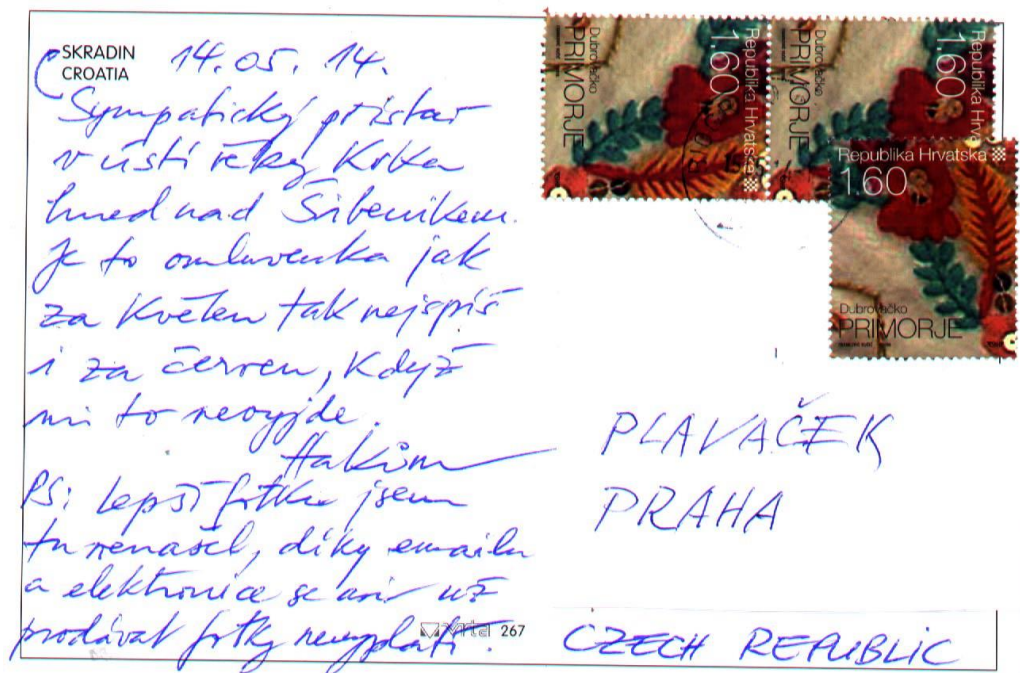 SKRADIN
CROATIA
14.05.14.
Sympatický přístav
v ústí řeky Krka
hned nad Šibenikem.
Je to omluvenka jak
za Květen tak nejspíš
i za červen, Když
mi to nevyjde.
PS: Lepší fotku jsem
tu nenašel, díky emailu
a elektronice se asi už
prodávat fotky nevyplatí.
267
Dubrovačko
PRIMORJE
1.60
Republika Hrvatska
Dubrovačko
PRIMORJE
1.60
Republika Hrvatska
Republika Hrvatska
1.60
Dubrovačko
PRIMORJE
PLAVAČEK
PRAHA
CZECH REPUBLIC